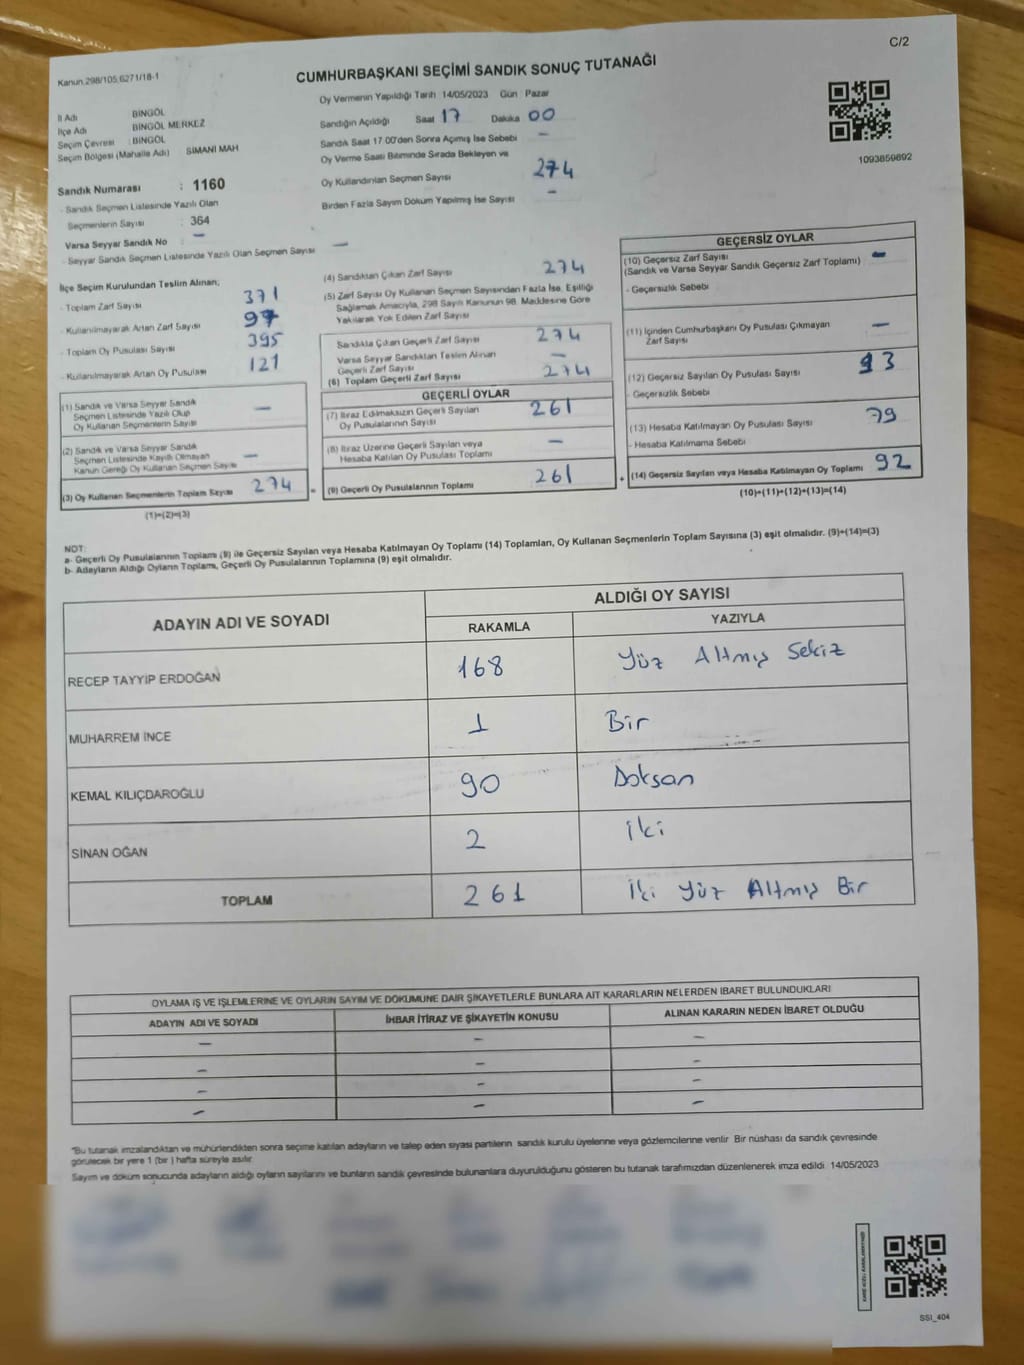 C/2
Kanun.298/105,6271/18-1
CUMHURBAŞKANI SEÇİMİ SANDIK SONUÇ TUTANAĞI
İl Adı BİNGÖL
İlçe Adı BİNGÖL MERKEZ
Seçim Çevresi : BİNGÖL
Seçim Bölgesi (Mahalle Adı) SİMANİ MAH
Sandık Numarası : 1160
- Sandık Seçmen Listesinde Yazılı Olan
Seçmenlerin Sayısı : 364
Varsa Seyyar Sandık No : -
- Seyyar Sandık Seçmen Listesinde Yazılı Olan Seçmen Sayısı -
Oy Vermenin Yapıldığı Tarih 14/05/2023 Gün : Pazar
Sandığın Açıldığı Saat 17 Dakika 00
Sandık Saat 17.00'den Sonra Açılmış İse Sebebi -
Oy Verme Saati Bitiminde Sırada Bekleyen ve
Oy Kullandırılan Seçmen Sayısı 274
Birden Fazla Sayım Döküm Yapılmış İse Sayısı -
1093859892
İlçe Seçim Kurulundan Teslim Alınan;
- Toplam Zarf Sayısı 371
- Kullanılmayarak Artan Zarf Sayısı 97
- Toplam Oy Pusulası Sayısı 395
- Kullanılmayarak Artan Oy Pusulası 121
(1) Sandık ve Varsa Seyyar Sandık
Seçmen Listesinde Yazılı Olup
Oy Kullanan Seçmenlerin Sayısı -
(2) Sandık ve Varsa Seyyar Sandık
Seçmen Listesinde Kayıtlı Olmayan
Kanun Gereği Oy Kullanan Seçmen Sayısı -
(3) Oy Kullanan Seçmenlerin Toplam Sayısı 274
(1)+(2)=(3)
(4) Sandıktan Çıkan Zarf Sayısı 274
(5) Zarf Sayısı Oy Kullanan Seçmen Sayısından Fazla İse, Eşitliği
Sağlamak Amacıyla, 298 Sayılı Kanunun 98. Maddesine Göre
Yakılarak Yok Edilen Zarf Sayısı
Sandıkta Çıkan Geçerli Zarf Sayısı 274
Varsa Seyyar Sandıktan Teslim Alınan
Geçerli Zarf Sayısı -
(6) Toplam Geçerli Zarf Sayısı 274
GEÇERLİ OYLAR
(7) İtiraz Edilmeksizin Geçerli Sayılan
Oy Pusulalarının Sayısı 261
(8) İtiraz Üzerine Geçerli Sayılan veya
Hesaba Katılan Oy Pusulası Toplamı -
= (9) Geçerli Oy Pusulalarının Toplamı 261
GEÇERSİZ OYLAR
(10) Geçersiz Zarf Sayısı
(Sandık ve Varsa Seyyar Sandık Geçersiz Zarf Toplamı) -
- Geçersizlik Sebebi
(11) İçinden Cumhurbaşkanı Oy Pusulası Çıkmayan
Zarf Sayısı -
(12) Geçersiz Sayılan Oy Pusulası Sayısı 93
- Geçersizlik Sebebi
(13) Hesaba Katılmayan Oy Pusulası Sayısı 79
- Hesaba Katılmama Sebebi
+ (14) Geçersiz Sayılan veya Hesaba Katılmayan Oy Toplamı 92
(10)+(11)+(12)+(13)=(14)
NOT:
a- Geçerli Oy Pusulalarının Toplamı (9) ile Geçersiz Sayılan veya Hesaba Katılmayan Oy Toplamı (14) Toplamları, Oy Kullanan Seçmenlerin Toplam Sayısına (3) eşit olmalıdır. (9)+(14)=(3)
b- Adayların Aldığı Oyların Toplamı, Geçerli Oy Pusulalarının Toplamına (9) eşit olmalıdır.
ADAYIN ADI VE SOYADI ALDIĞI OY SAYISI
RAKAMLA YAZIYLA
RECEP TAYYİP ERDOĞAN 168 Yüz Altmış Sekiz
MUHARREM İNCE 1 Bir
KEMAL KILIÇDAROĞLU 90 Doksan
SİNAN OĞAN 2 iki
TOPLAM 261 İki Yüz Altmış Bir
OYLAMA İŞ VE İŞLEMLERİNE VE OYLARIN SAYIM VE DÖKÜMÜNE DAİR ŞİKAYETLERLE BUNLARA AİT KARARLARIN NELERDEN İBARET BULUNDUKLARI
ADAYIN ADI VE SOYADI İHBAR İTİRAZ VE ŞİKAYETİN KONUSU ALINAN KARARIN NEDEN İBARET OLDUĞU
- - -
- - -
- - -
- - -
"Bu tutanak imzalandıktan ve mühürlendikten sonra seçime katılan adayların ve talep eden siyasi partilerin sandık kurulu üyelerine veya gözlemcilerine verilir. Bir nüshası da sandık çevresinde
görülecek bir yere 1 (bir) hafta süreyle asılır.
Sayım ve döküm sonucunda adayların aldığı oyların sayılarını ve bunların sandık çevresinde bulunanlara duyurulduğunu gösteren bu tutanak tarafımızdan düzenlenerek imza edildi. 14/05/2023
SSI_404